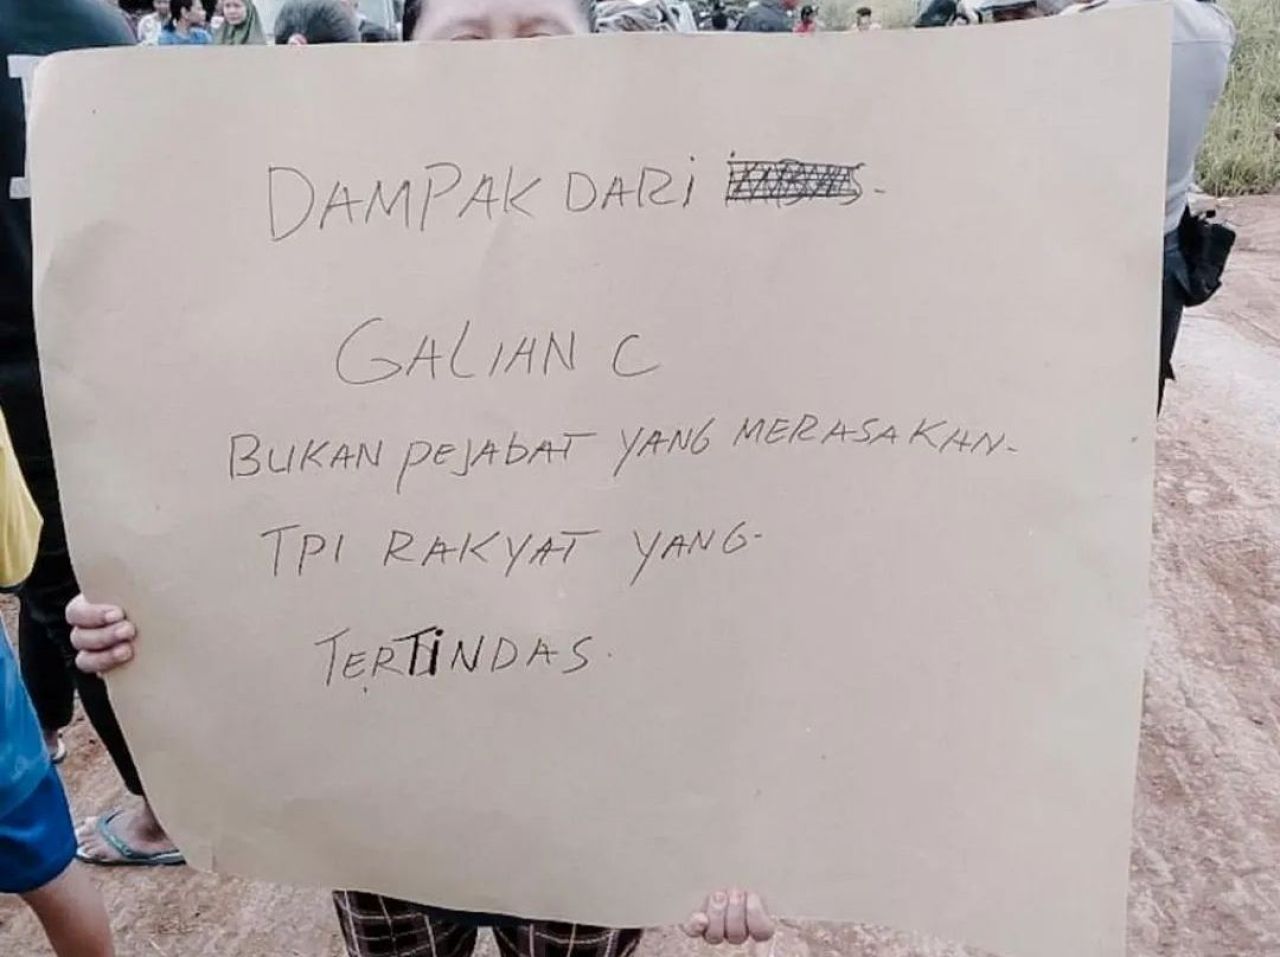 DAMPAK DARi
GALIAN C
BUKAN PEJAbAT YANG MERASAKAN-
TPI RAKYAT YANG-
TERTiNDAS.